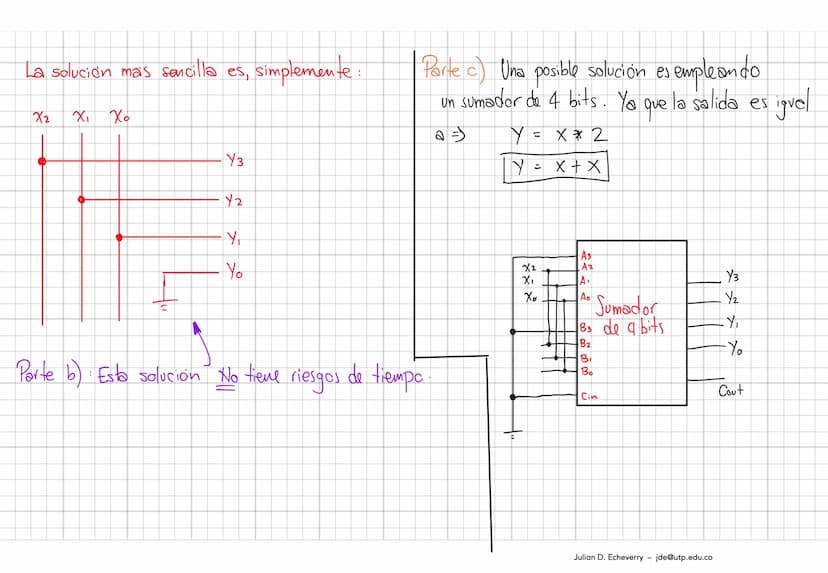 La solución mas sencilla es, simplemente:
X2 X1 X0
Y3
Y2
Y1
Y0
Parte b): Esta solución No tiene riesgos de tiempo.
Parte c) Una posible solución es empleando
un sumador de 4 bits. Ya que la salida es igual
a => Y = X * 2
Y = X + X
X2
X1
X0
A3
A2
A1
A0
B3
B2
B1
B0
Cin
Sumador
de 4 bits
Y3
Y2
Y1
Y0
Cout
Julian D. Echeverry – jde@utp.edu.co